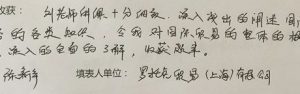 收获： 刘老师讲课十分细致，深入浅出的阐述国
的各类知识，令我对国际贸易的整体的
深入的全面的了解，收获颇丰。
陈新 填表人单位： 罗托克贸易（上海）有限公司